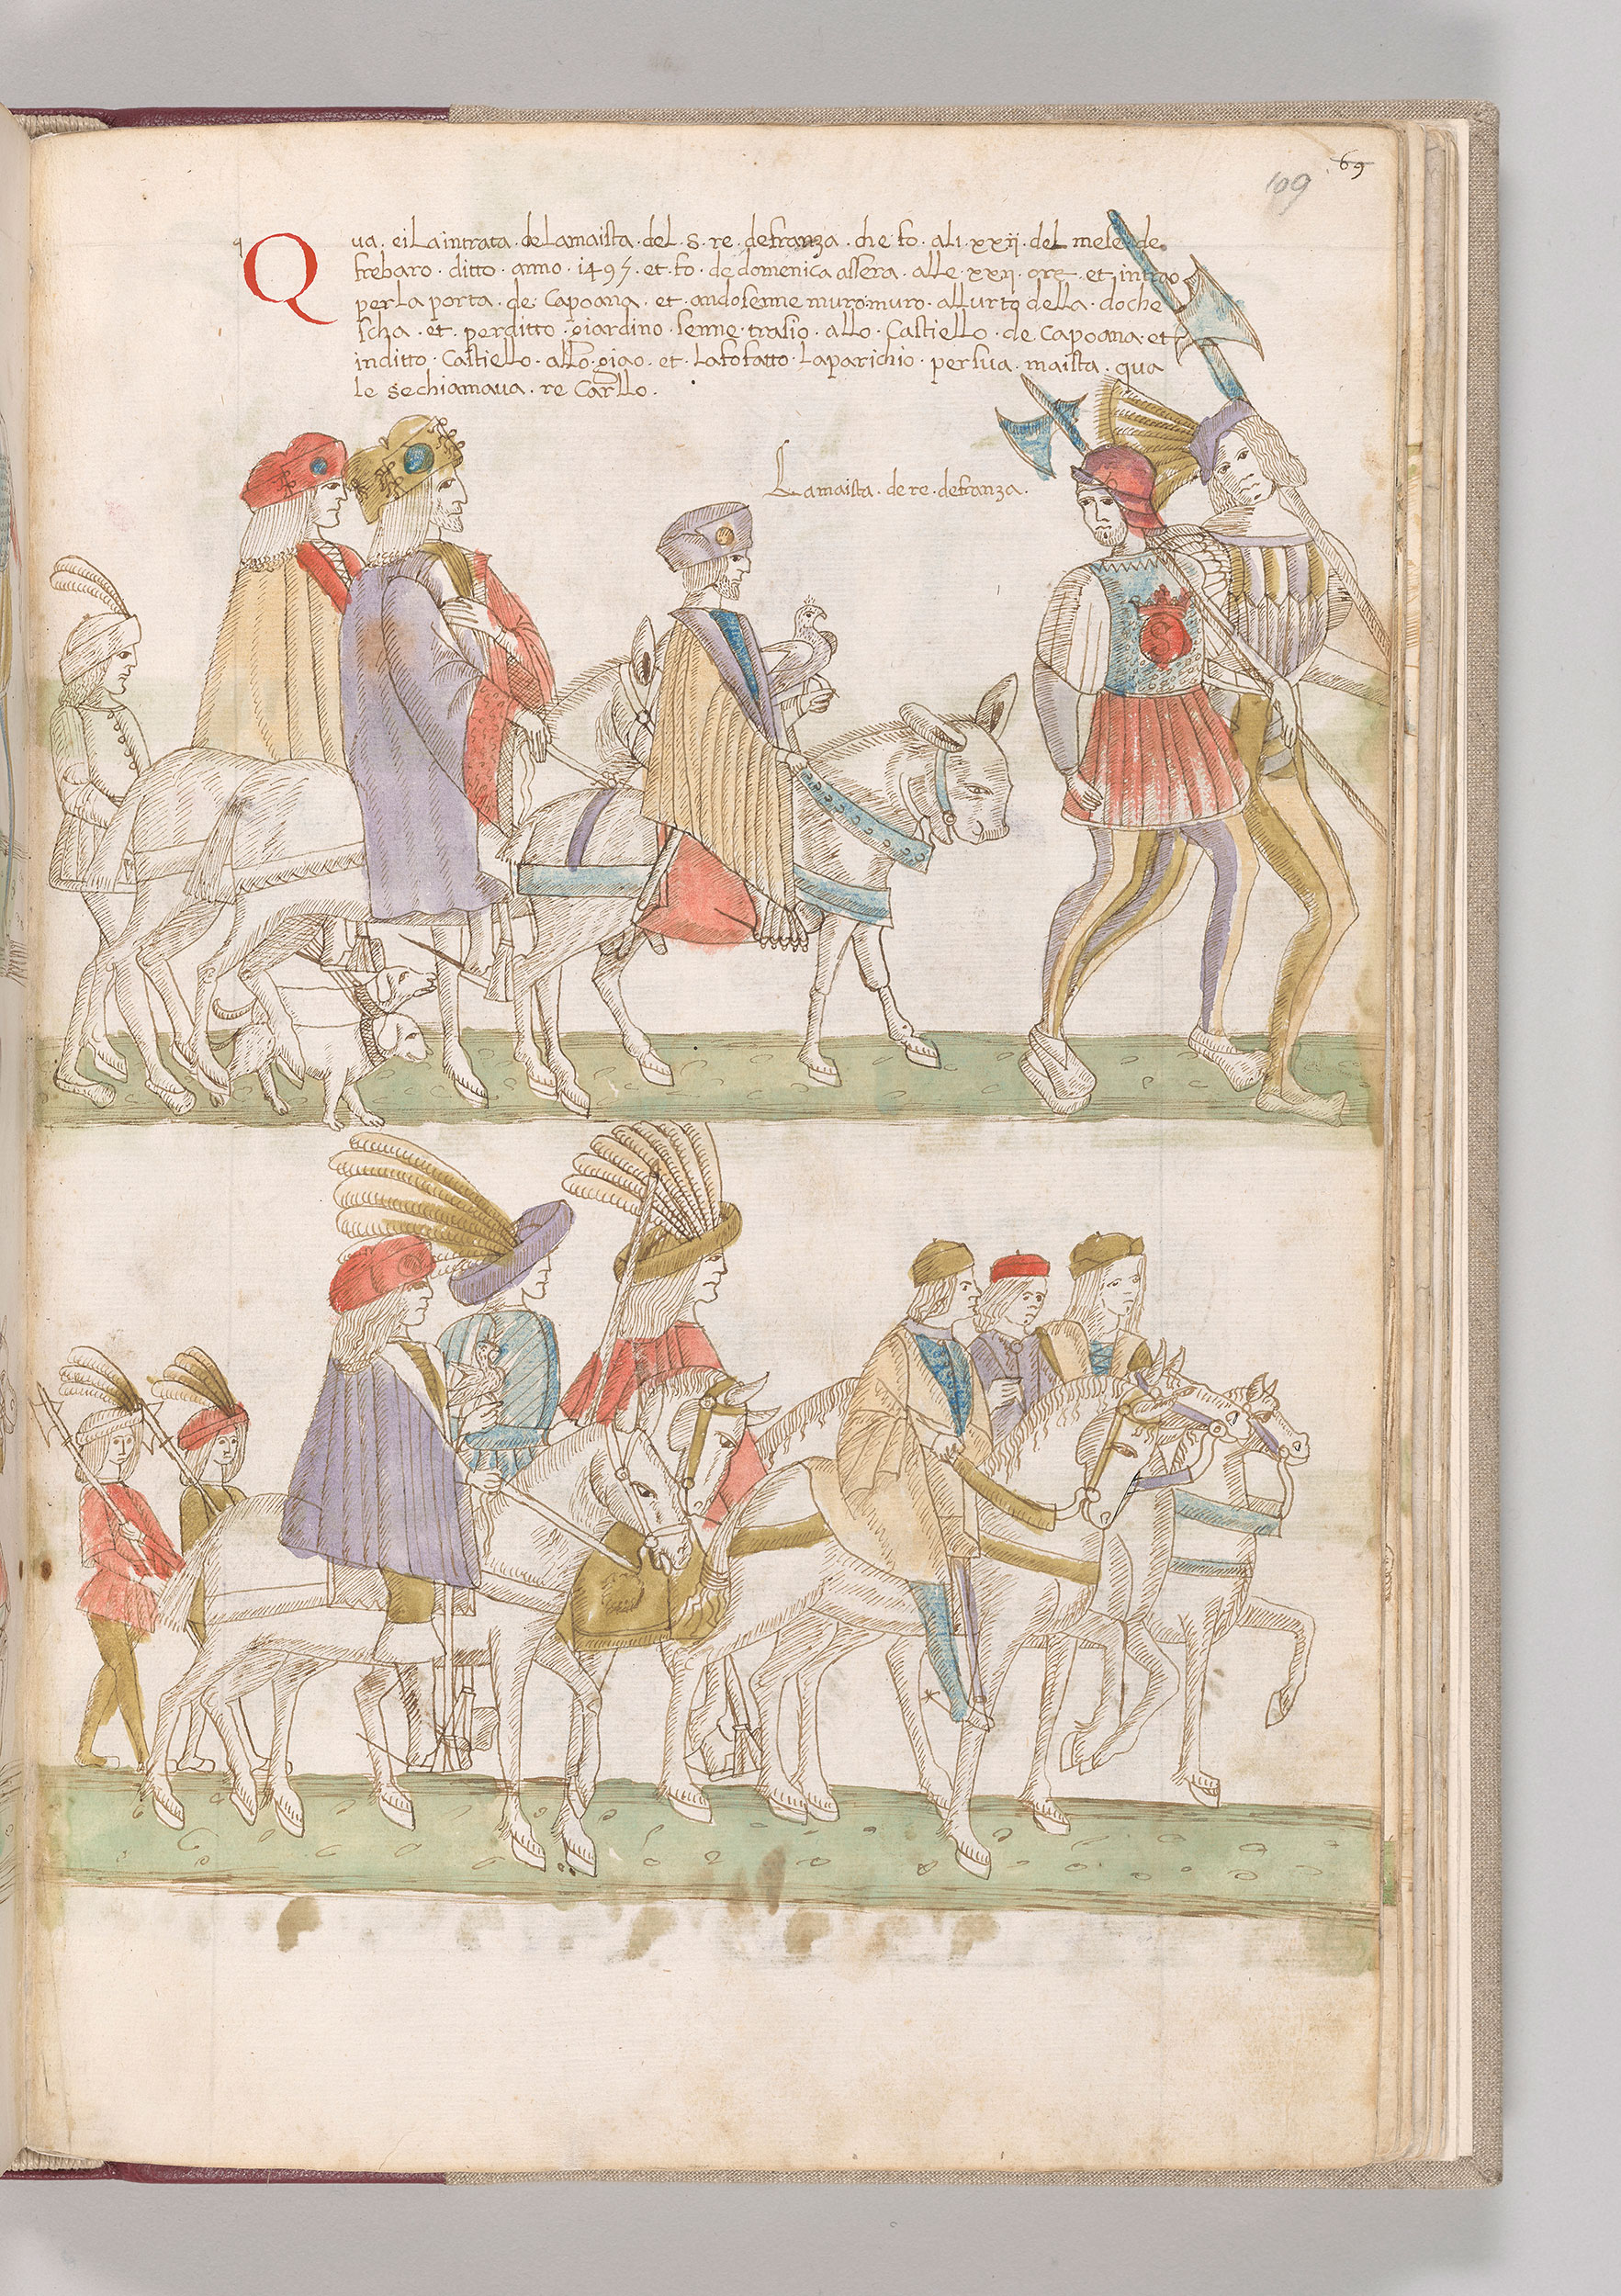 69
109
Qua · ei La intrata · de La maista · del · s · re · de franza · che fo · ali · xxij · del mese · de
frebaro · ditto · anno · 1495 · et · fo · de domenica assera · alle · xxij · ore · et intrao
per La porta · de · Capoana · et · andosenne muro · muro · all urto della · doche
scha · et · per ditto · giardino · senne · trasio · allo · Castiello · de Capoana · et
in ditto · Castiello · allogiao · et · La fo fatto · Laparichio · per sua · maista · qua
le se chiamaua · re Carllo ·
La maista · de re · de franza ·